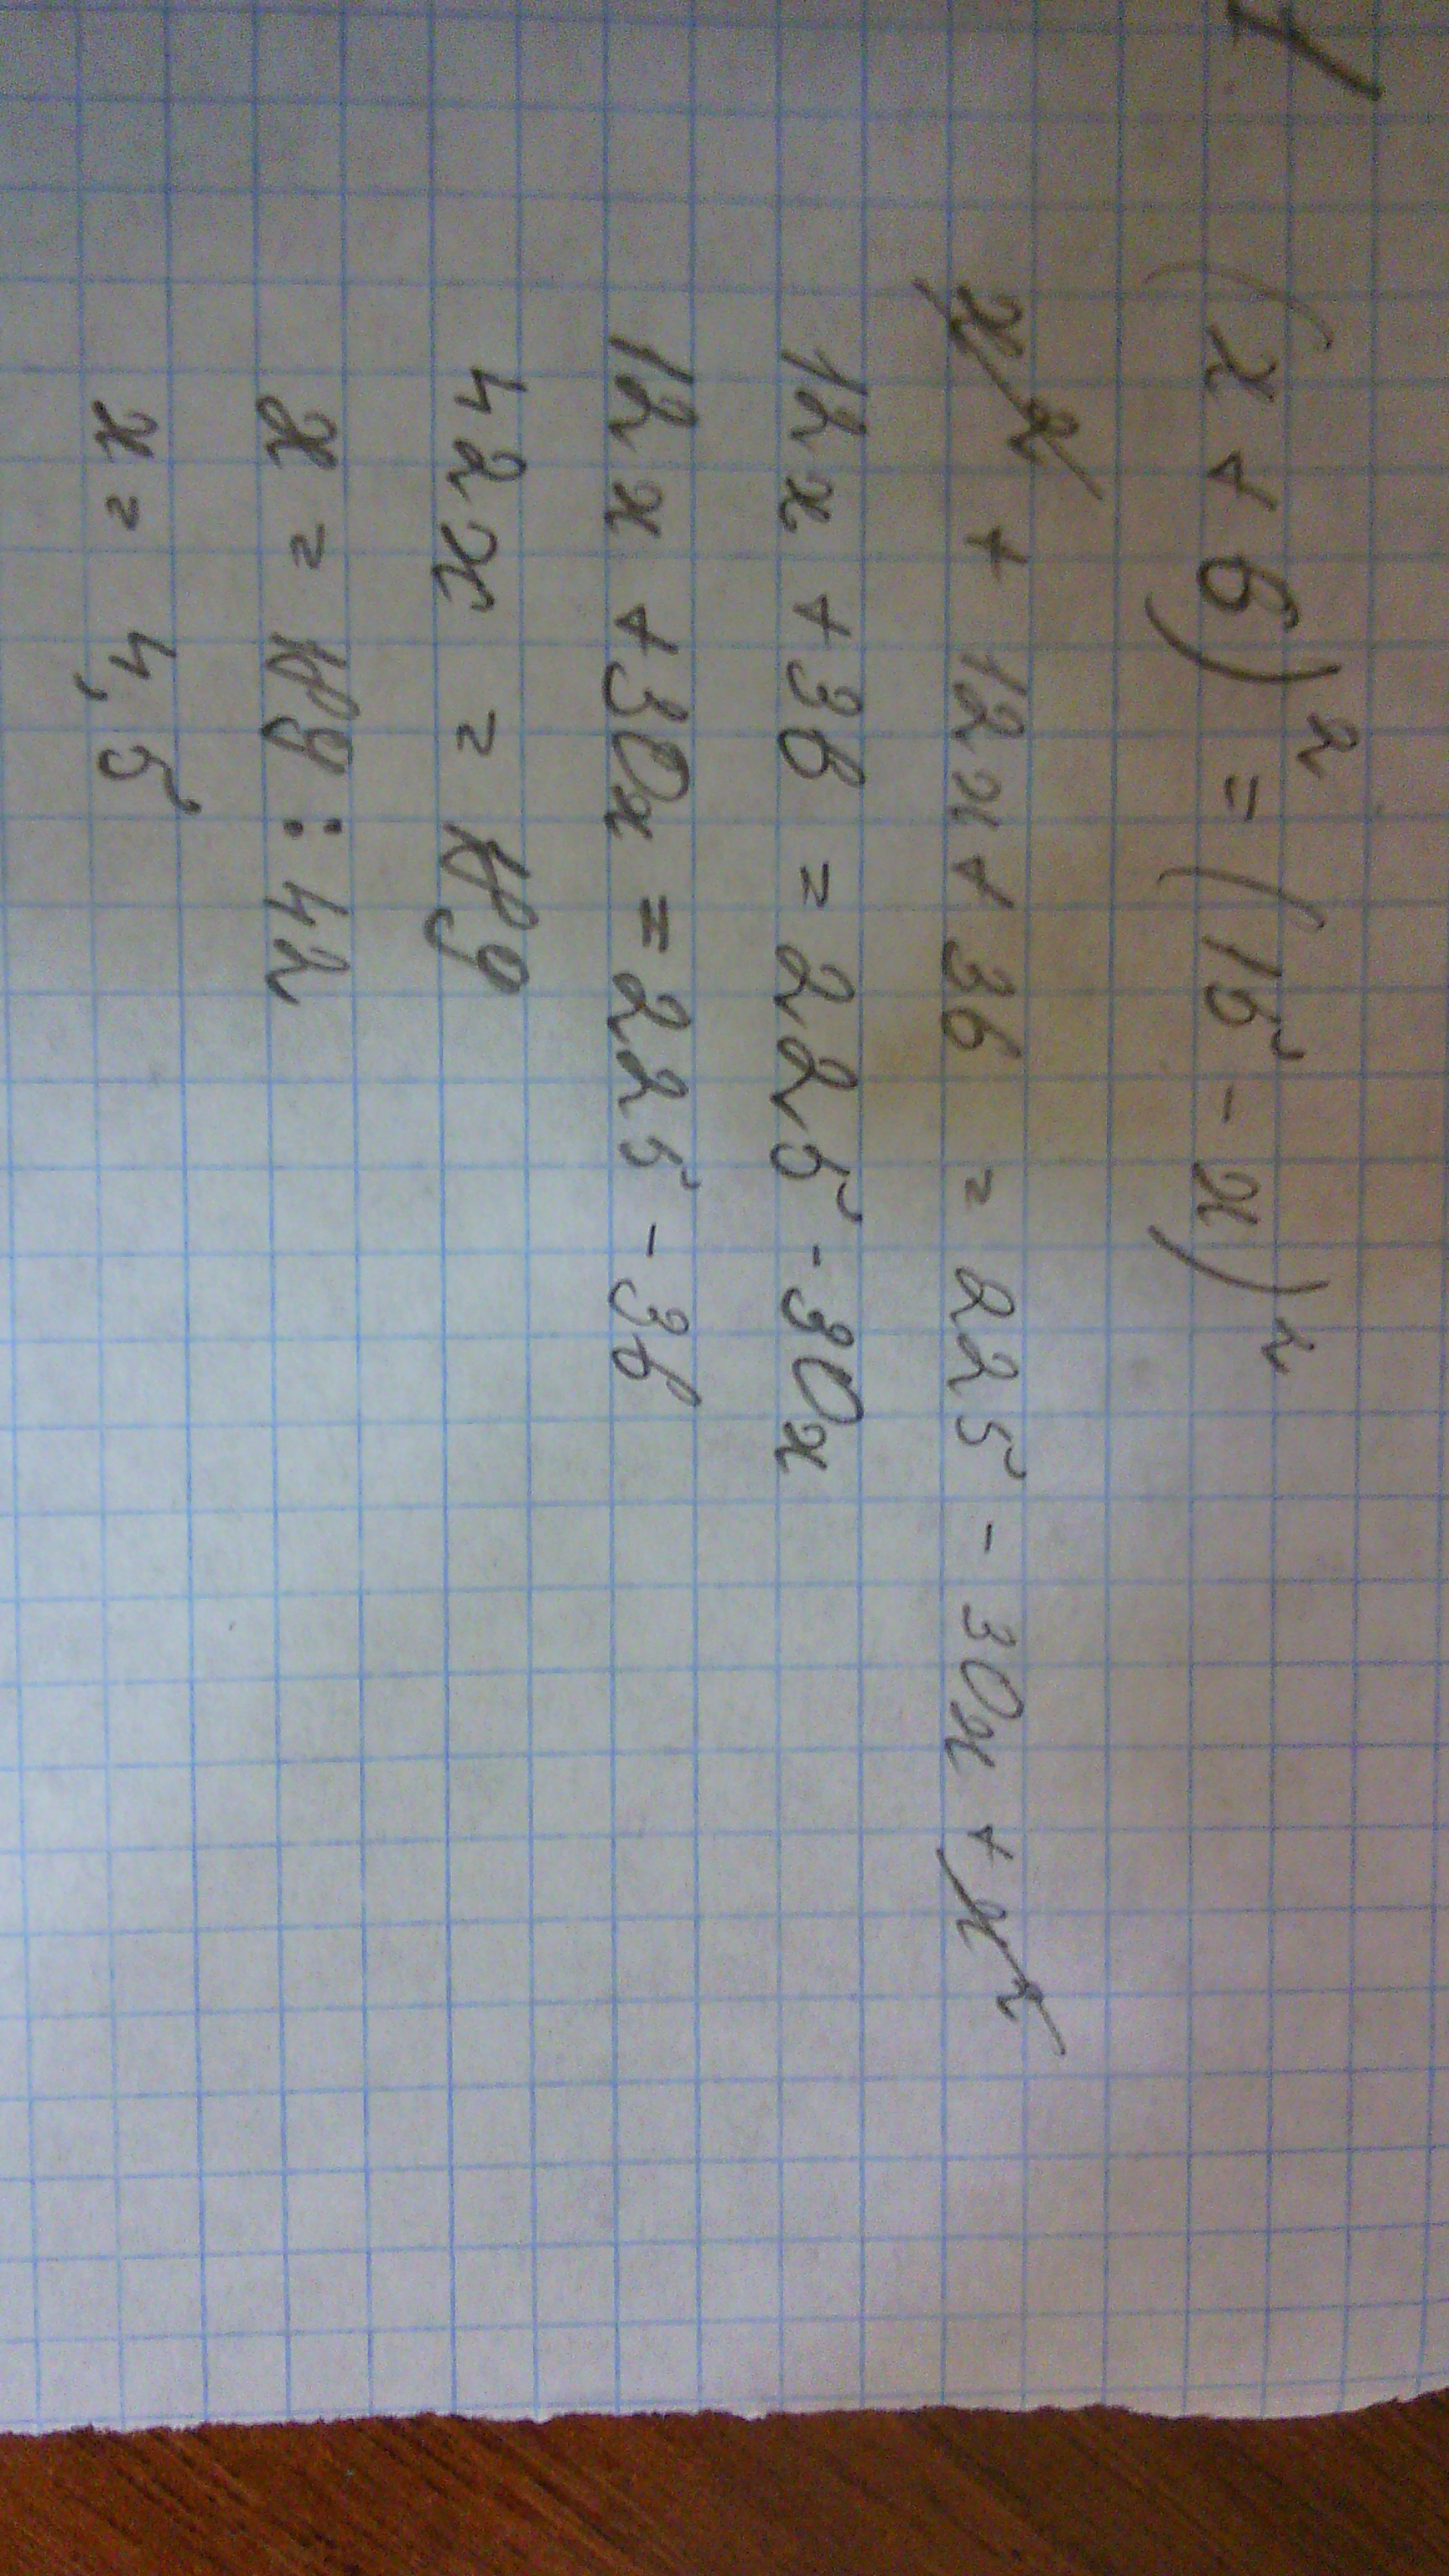 (x + 6)² = (15 - x)²
x² + 12x + 36 = 225 - 30x + x²
12x + 36 = 225 - 30x
12x + 30x = 225 - 36
42x = 189
x = 189 : 42
x = 4,5